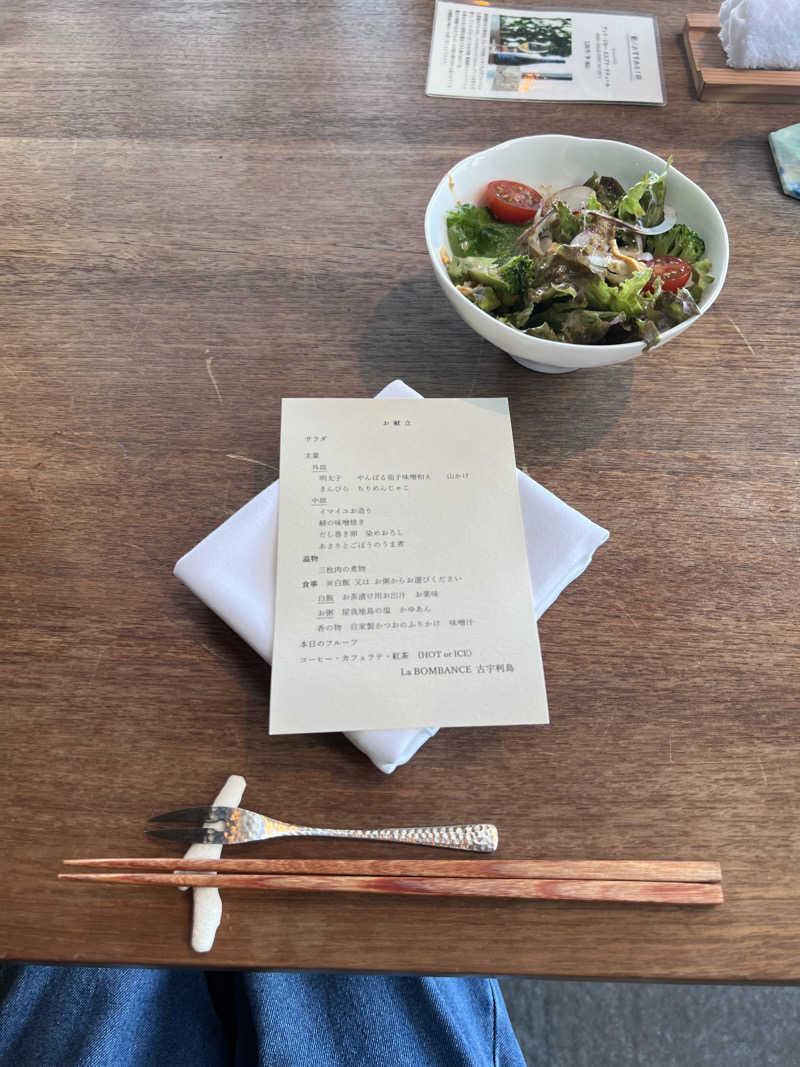 お献立
サラダ
主菜
外皿
明太子　やんばる茄子味噌和え　山かけ
きんぴら　ちりめんじゃこ
中皿
イマイユお造り
鰆の味噌焼き
だし巻き卵　染めおろし
あさりとごぼうのうま煮
温物
三枚肉の煮物
食事　※白飯 又は お粥からお選びください
白飯　お茶漬け用お出汁　お薬味
お粥　屋我地島の塩　かゆあん
香の物　自家製かつおのふりかけ　味噌汁
本日のフルーツ
コーヒー・カフェラテ・紅茶　(HOT or ICE)
La BOMBANCE 古宇利島